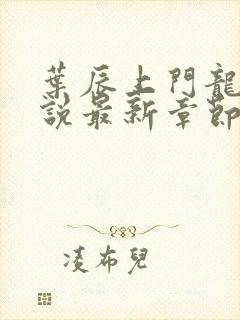 葉辰上門龍
說最新章節
凌布兒